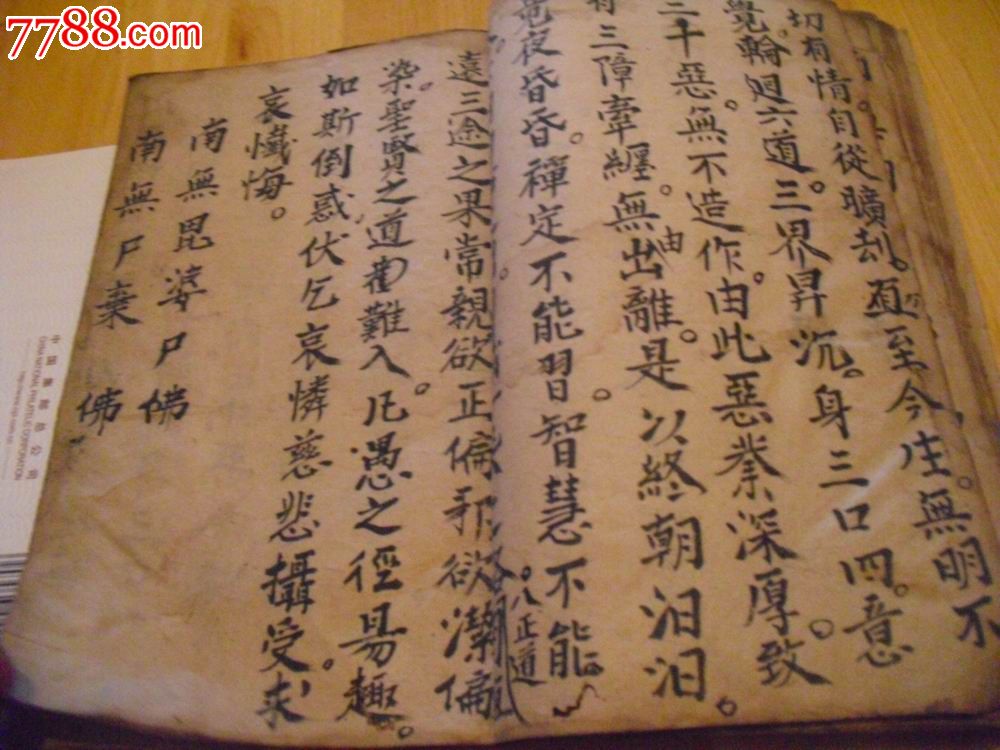 切有情自從曠刦。直至今生。無明不
覺。輪廻六道。三界昇沉。身三口四。意
二千惡。無不造作。由此惡業深厚。致
有三障牽纏。無由出離。是以終朝汨汨。
竟夜昏昏。禪定不能習。智慧不能
八正道
遠三途之果常親欲正偏邪欲潔偏
染。聖賢之道難入。凡愚之徑易趣。
如斯倒惑伏乞哀憐慈悲攝受。求
哀懺悔。
南無毘婆尸佛
南無尸棄佛
7788.com
中国集邮总公司
CHINA NATIONAL PHILATELIC CORPORATION